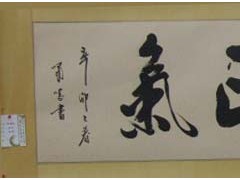 正氣
辛卯之春
書